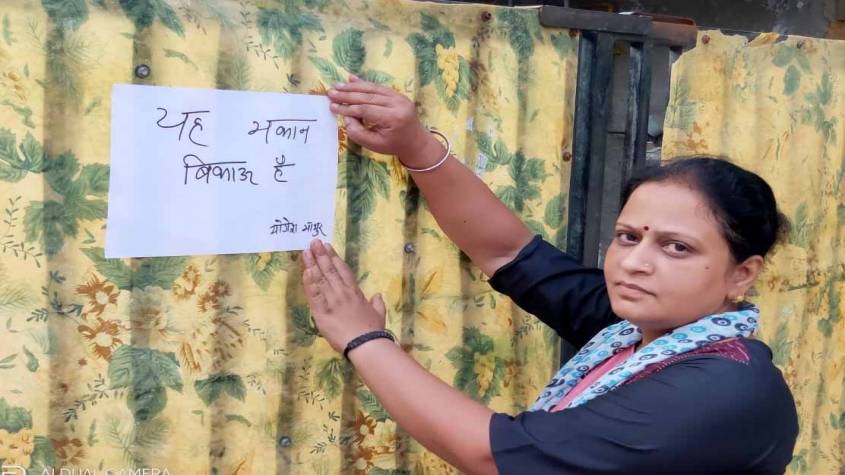 यह मकान
बिकाऊ है
AI DUAL CAMERA